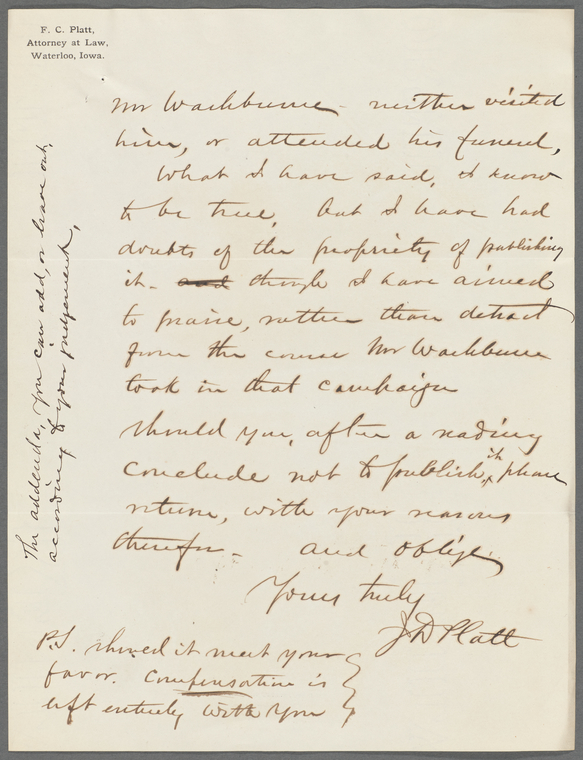 F. C. Platt,
Attorney at Law,
Waterloo, Iowa.
Mr Washburne - neither visited
him, or attended his funeral,
What I have said, I know
to be true, but I have had
doubts of the propriety of publishing
it - and though I have aimed
to praise, rather than detract
from the course Mr Washburne
took in that campaign
Should you, after a reading
conclude not to publish, it, please
return, with your reasons
therefor - and oblige,
Yours truly
J D Platt
P.S. should it meet your
favor. Compensation is
left entirely with you
The addenda, you can add, or leave out,
according to your judgement,